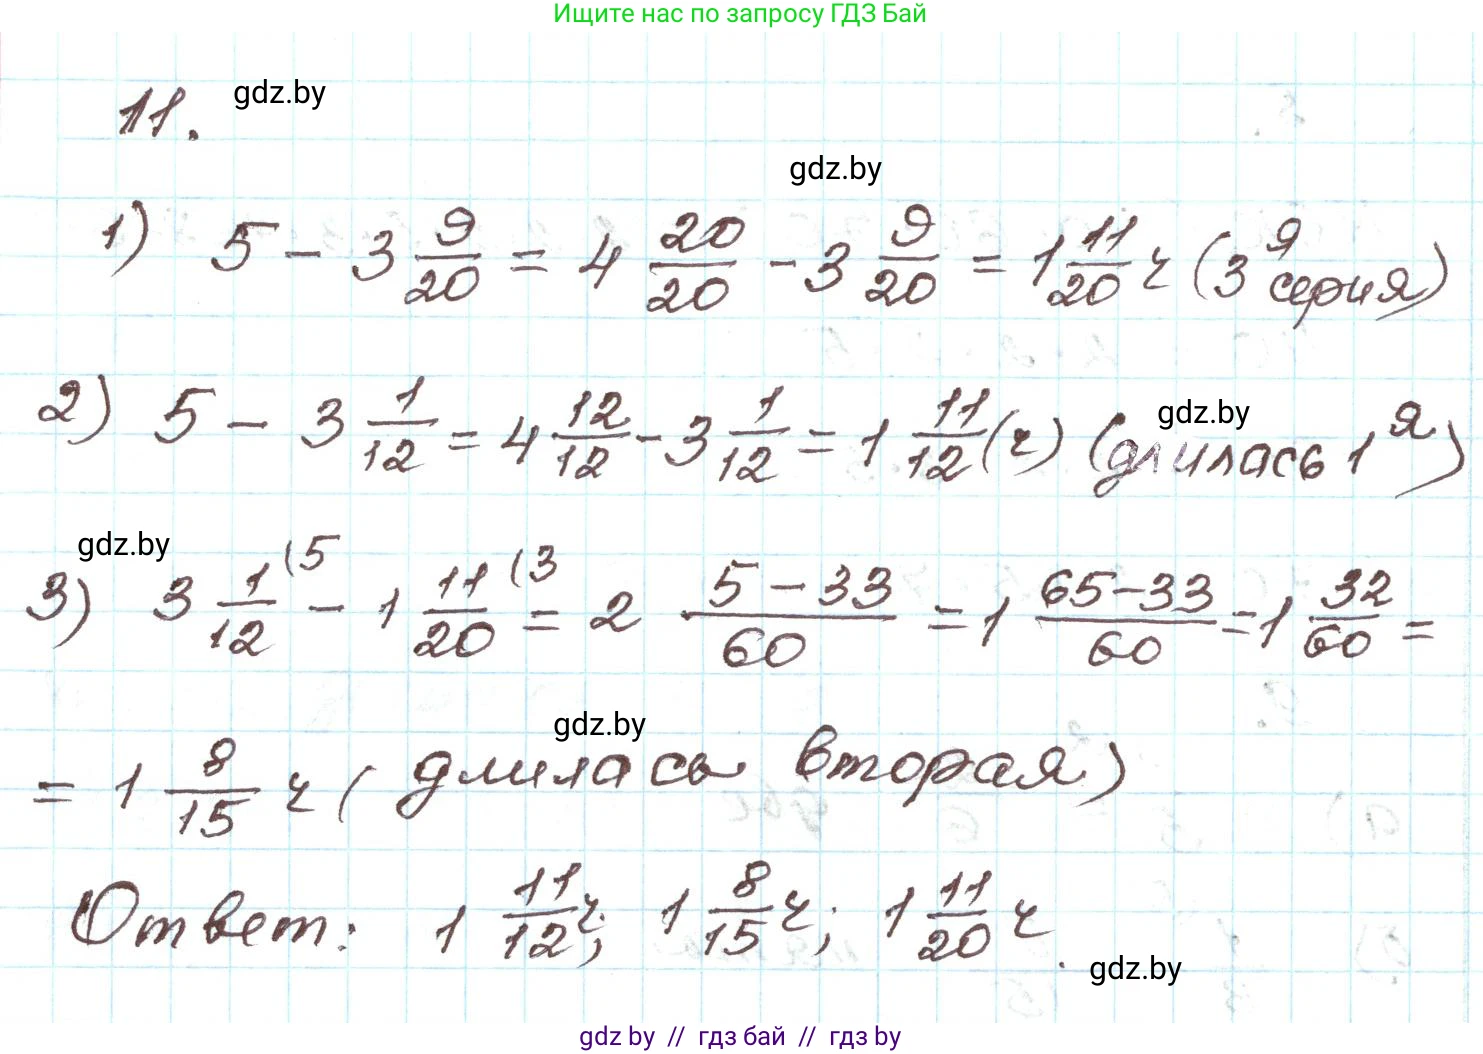 Ищите нас по запросу ГДЗ Бай
11. gdz.by
gdz.by
1) 5 - 3 9/20 = 4 20/20 - 3 9/20 = 1 11/20 ч (3я серия)
2) 5 - 3 1/12 = 4 12/12 - 3 1/12 = 1 11/12 (ч) (длилась 1я)
gdz.by
gdz.by
3) 3 1/12 (5 - 1 11/20 (3 = 2 5-33/60 = 1 65-33/60 = 1 32/60 =
gdz.by
= 1 8/15 ч (длилась вторая)
Ответ: 1 11/12 ч; 1 8/15 ч; 1 11/20 ч.
gdz.by
gdz by // гдз бай // гдз by